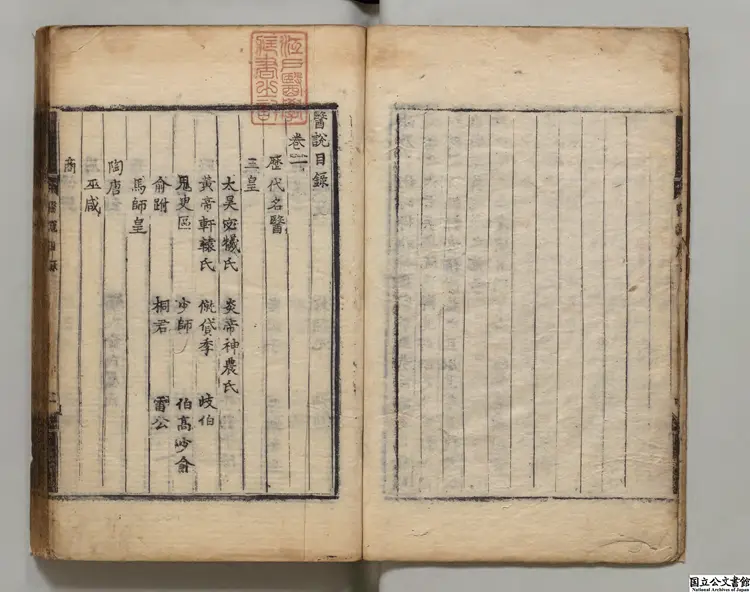 江戶醫學
藏書之記
醫說目錄
卷一
歷代名醫
三皇
太昊宓犧氏 炎帝神農氏
黃帝軒轅氏 僦貸季 岐伯
鬼臾區 少師 伯高少俞
俞跗 桐君 雷公
馬師皇
陶唐
巫咸
商
国立公文書館
National Archives of Japan